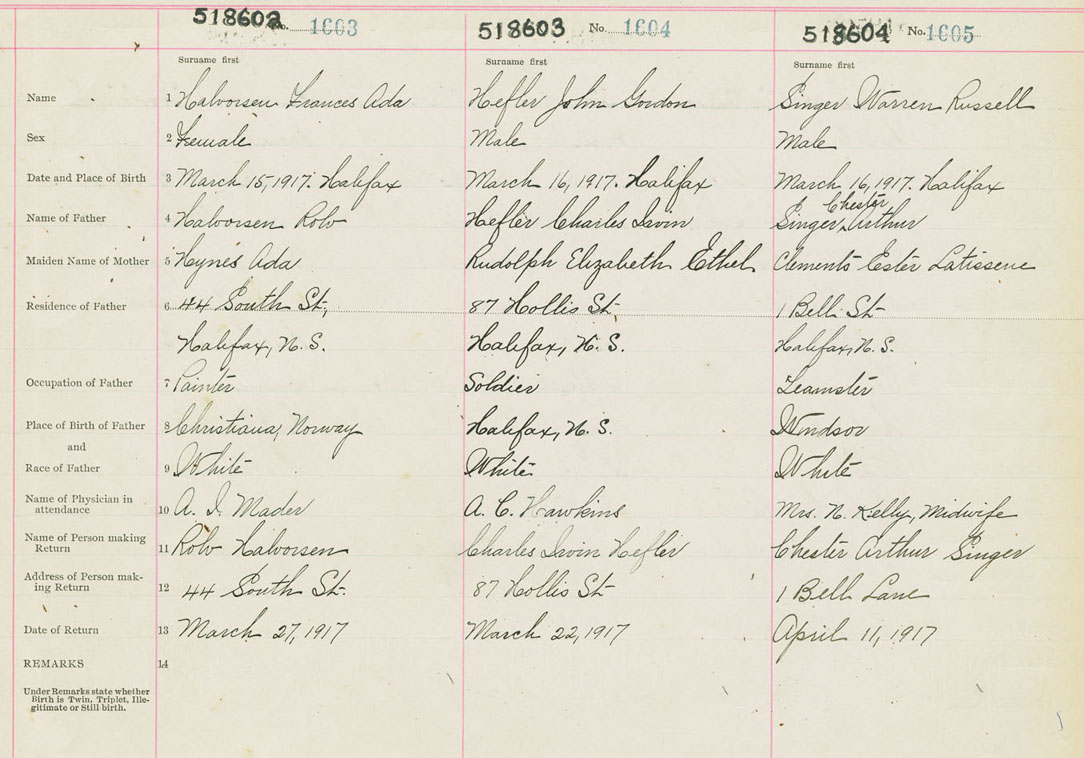 518602 No. 1603 518603 No. 1604 518604 No. 1605
Surname first Surname first Surname first
Name 1 Halvorsen Frances Ada Hefler John Gordon Singer Warren Russell
Sex 2 Female Male Male
Date and Place of Birth 3 March 15, 1917. Halifax March 16, 1917. Halifax March 16, 1917. Halifax
Chester
Name of Father 4 Halvorsen Rolv Hefler Charles Irvin Singer, Arthur
Maiden Name of Mother 5 Hynes Ada Rudolph Elizabeth Ethel Clements Ester
Residence of Father 6 44 South St, 87 Hollis St. 1 Bell St
Halifax, N. S. Halifax, N. S. Halifax, N. S.
Occupation of Father 7 Painter Soldier Teamster
Place of Birth of Father 8 Christiana, Norway Halifax, N. S. Windsor
and
Race of Father 9 White White White
Name of Physician in
attendance 10 A. I. Mader A. C. Hawkins Mrs. N. Kelly, Midwife
Name of Person making
Return 11 Rolv Halvorsen Charles Irvin Hefler Chester Arthur Singer
Address of Person mak-
ing Return 12 44 South St. 87 Hollis St 1 Bell Lane
Date of Return 13 March 27, 1917 March 22, 1917 April 11, 1917
REMARKS 14
Under Remarks state whether
Birth is Twin, Triplet, Ille-
gitimate or Still birth.